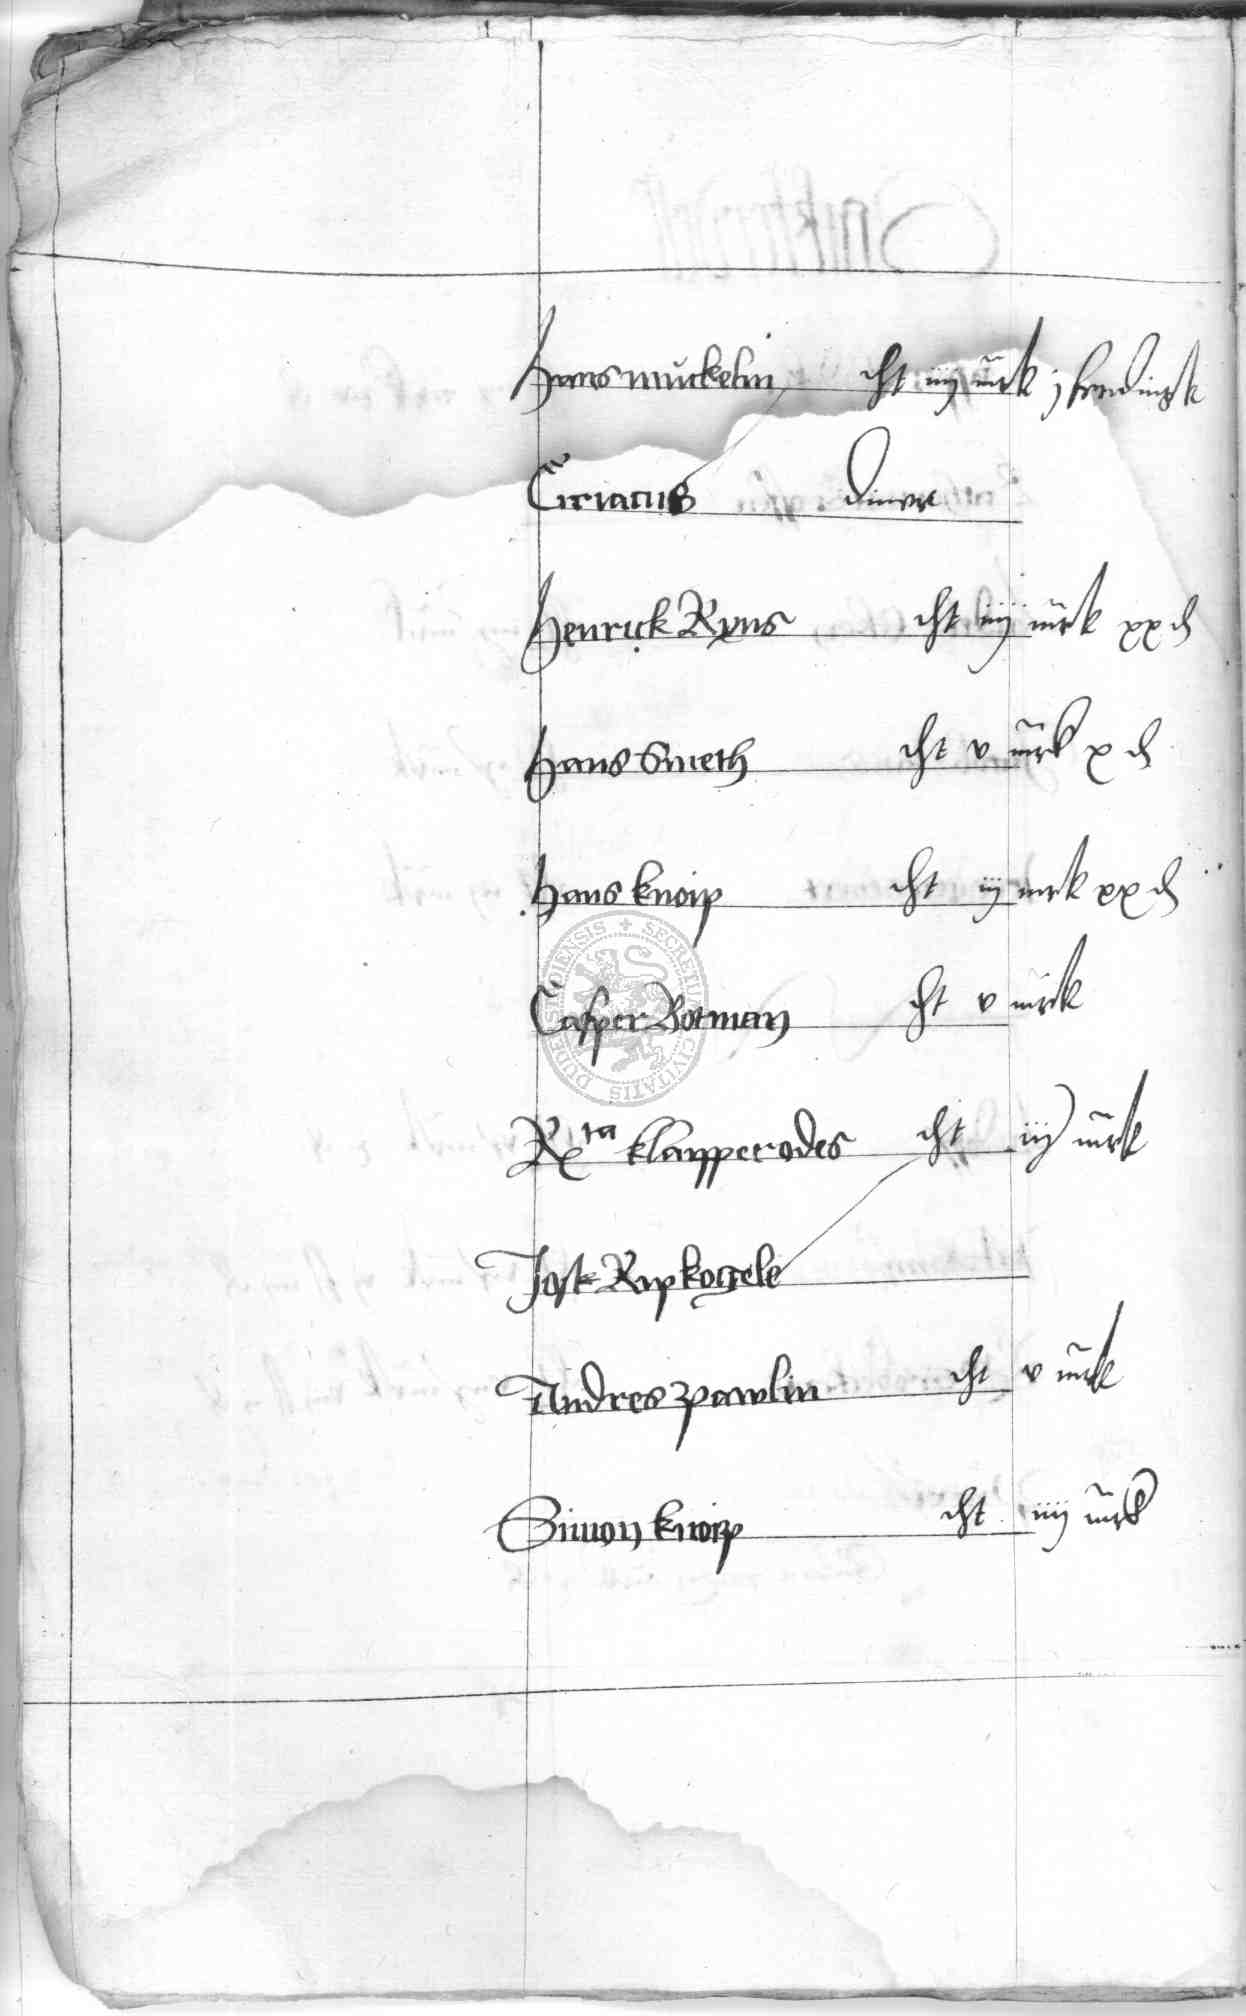 Hans muckelin cht iiij mrk j ferdingk
Ciriacus diner
Henrick Ryns cht iiij mrk xx d
Hans Smeth cht v mrk x d
Hans knorp cht iij mrk xx d
Casper Botman cht v mrk
Rta klapperodes cht iij mrk
Jost Rapkogele
Andres pawlin cht v mrk
Simon knorp cht iiij mrk
SECRETUM CIVITATIS DUDE